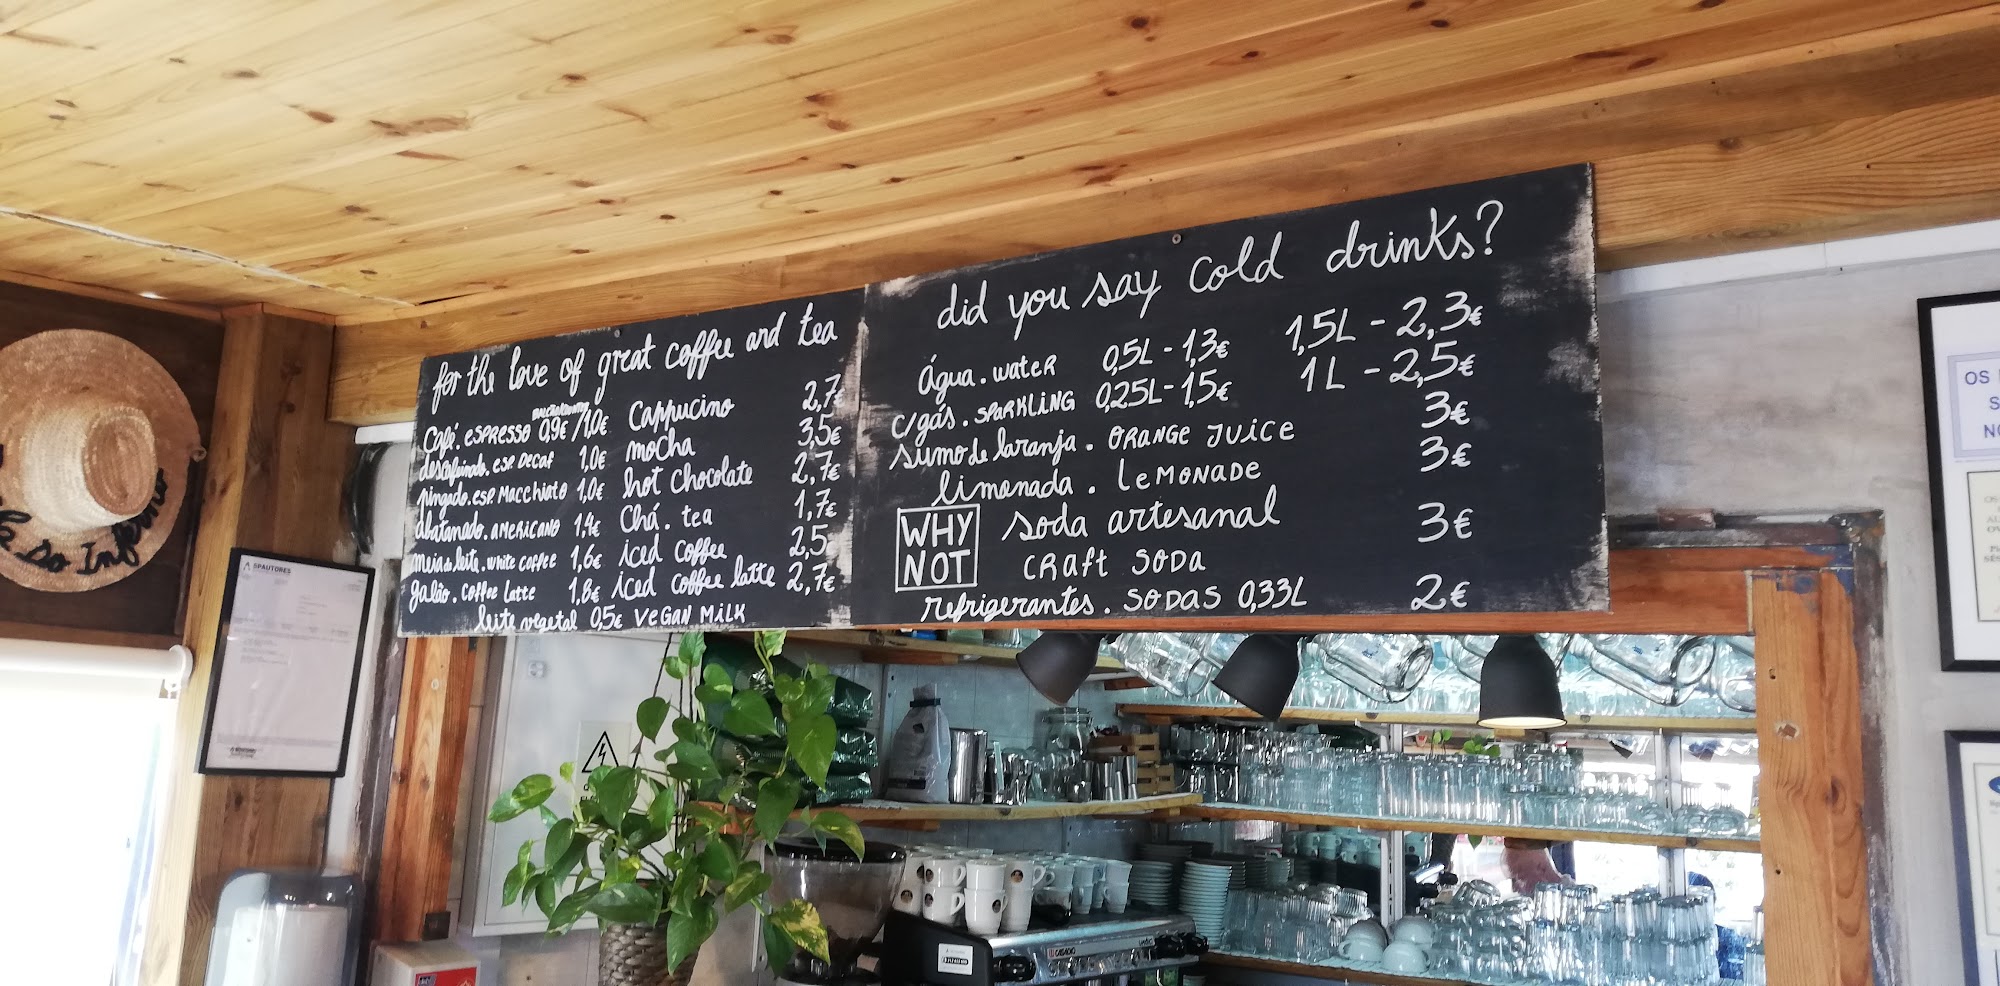 for the love of great coffee and tea
café. espresso 0,9€ / 1,0€
descafeinado. esp. decaf 1,0€
pingado. esp. macchiato 1,0€
abatanado. AMERICANO 1,4€
meia de leite. white coffee 1,6€
galão. coffee latte 1,8€
Cappucino 2,7€
mocha 3,5€
hot chocolate 2,7€
Chá. tea 1,7€
iced coffee 2,5
iced coffee latte 2,7€
leite vegetal 0,5€ VEGAN MILK
did you say cold drinks?
água. water 0,5L - 1,3€ 1,5L - 2,3€
c/gás. SPARKLING 0,25L - 1,5€ 1L - 2,5€
sumo de laranja. ORANGE JUICE 3€
limonada. LEMONADE 3€
WHY NOT
soda artesanal 3€
CRAft SODA
refrigerantes. SODAS 0,33L 2€
SPAUTORES
OS